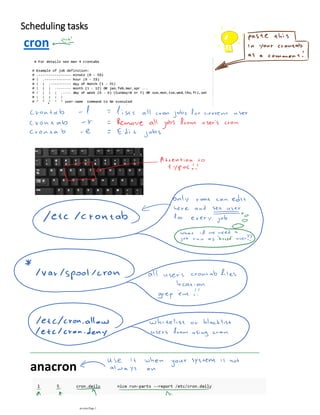 Scheduling tasks
cron
paste this
in your crontab
as a comment!
# For details see man 4 crontabs
# Example of job definition:
# .---------------- minute (0 - 59)
# | .------------- hour (0 - 23)
# | | .---------- day of month (1 - 31)
# | | | .------- month (1 - 12) OR jan,feb,mar,apr ...
# | | | | .---- day of week (0 - 6) (Sunday=0 or 7) OR sun,mon,tue,wed,thu,fri,sat
# | | | | |
# * * * * * user-name command to be executed
crontab -l = lists all cron jobs for current user
crontab -r = Remove all jobs from user's cron
crontab -e = Edit jobs
Attention to
typos!!
/etc/crontab
only root can edit
here and see user
for every job
what if we need a
job run as user!?
*
/var/spool/cron
all user's crontab files
location
grep em!!
/etc/cron.allow
/etc/cron.deny
whitelist or blacklist
users from using cron
anacron
use it when your system is not
always on
1 5 cron.daily nice run-parts --report /etc/cron.daily